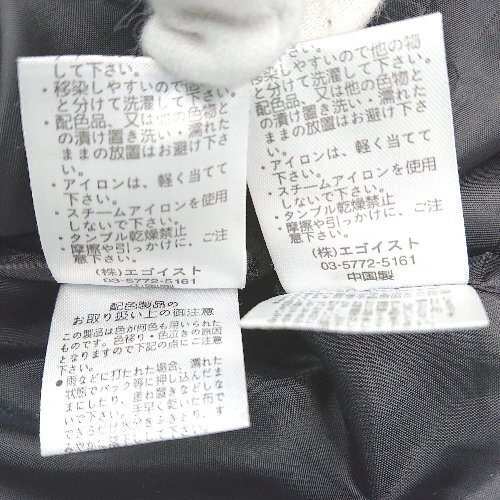 して下さい。
・移染しやすいので他の物
と分けて洗濯して下さい。
・配色品、又は他の色物と
の漬け置き洗い・濡れた
ままの放置はお避け下さ
い。
・アイロンは、軽く当てて
下さい。
・スチームアイロンを使用
しないで下さい。
・タンブル乾燥禁止
・摩擦や引っかけに、ご注
意下さい。
(株)エゴイスト
03-5772-5161
・移染しやすいので他の物
と分けて洗濯して下さい。
・配色品、又は他の色物と
の漬け置き洗い・濡れた
ままの放置はお避け下さ
い。
・アイロンは、軽く当てて
下さい。
・スチームアイロンを使用
しないで下さい。
・タンブル乾燥禁止
・摩擦や引っかけに、ご注
意下さい。
(株)エゴイスト
03-5772-5161
中国製
配色製品の
お取り扱い上の御注意
この製品は色が何色も用いられた
ものです。色移り・色泣きの原因
となりますので下記の点にご注意
下さい。
●雨などに打たれた場合、濡れた
状態でバック等に押し込んだま
まにしたり、重ね置きなどしな
いで下さい。手早く乾いた布で